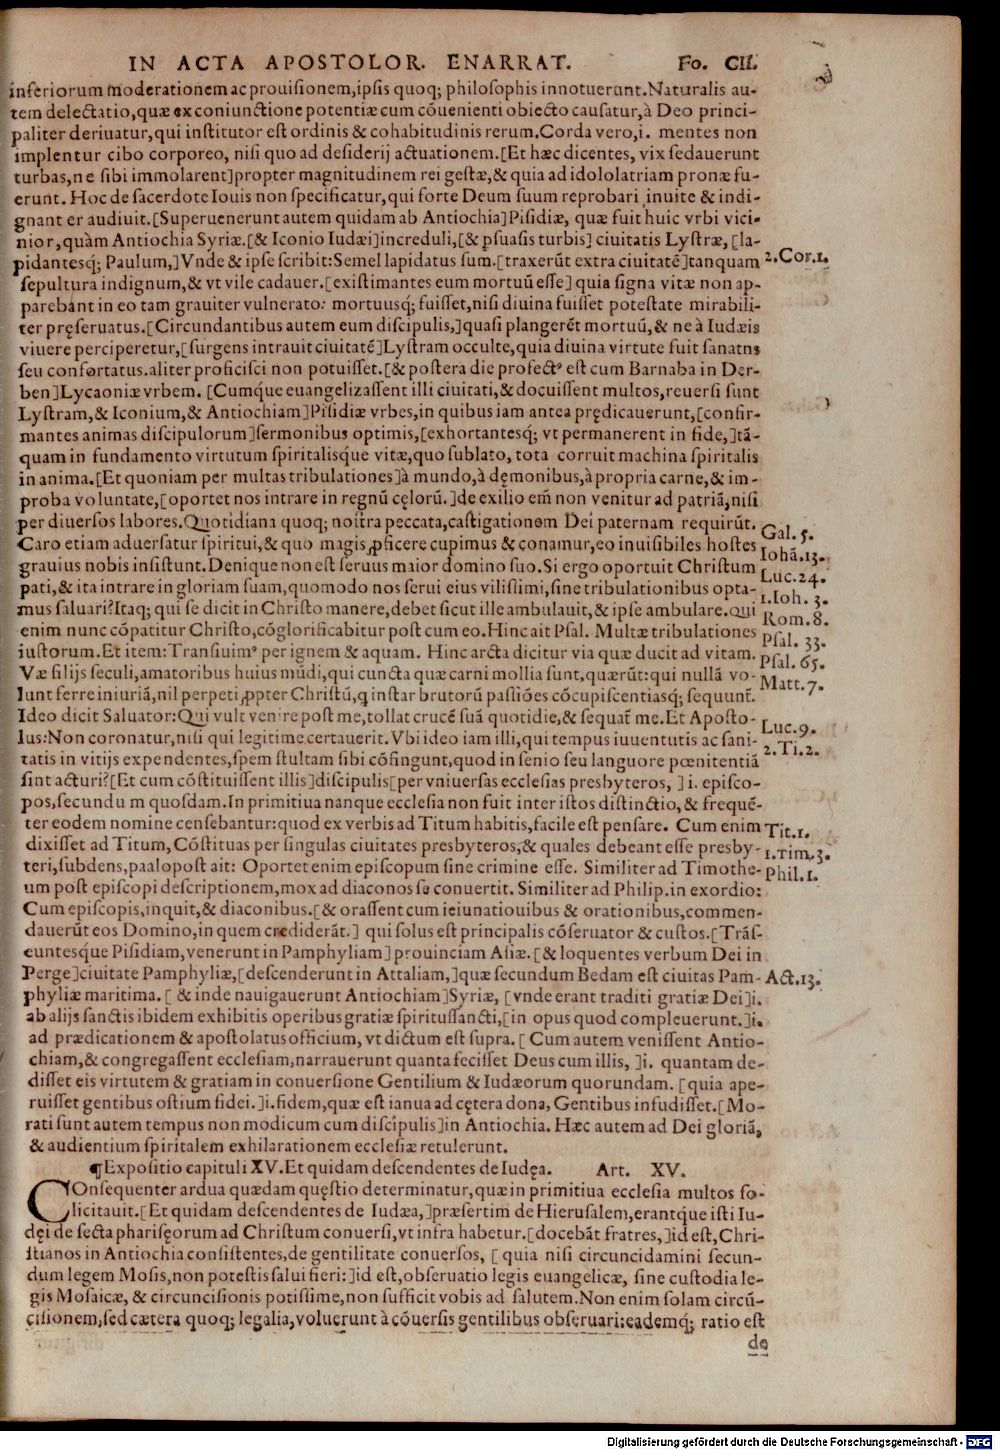 IN ACTA APOSTOLOR. ENARRAT. Fo. CII.
inferiorum moderationem ac prouisionem, ipsis quoq; philosophis innotuerunt. Naturalis au-
tem delectatio, quæ ex coniunctione potentiæ cum cõuenienti obiecto causatur, à Deo princi-
paliter deriuatur, qui institutor est ordinis & cohabitudinis rerum. Corda vero, i. mentes non
implentur cibo corporeo, nisi quo ad desiderij actuationem. [Et hæc dicentes, vix sedauerunt
turbas, ne sibi immolarent] propter magnitudinem rei gestæ, & quia ad idololatriam pronæ fu-
erunt. Hoc de sacerdote Iouis non specificatur, qui forte Deum suum reprobari inuite & indi-
gnant er audiuit. [Superuenerunt autem quidam ab Antiochia] Pisidiæ, quæ fuit huic vrbi vici-
nior, quàm Antiochia Syriæ. [& Iconio Iudæi] increduli, [& psuasis turbis] ciuitatis Lystræ, [la-
pidantesq; Paulum,] Vnde & ipse scribit: Semel lapidatus sum. [traxerũt extra ciuitatẽ] tanquam 2. Cor. 1.
sepultura indignum, & vt vile cadauer. [existimantes eum mortuũ esse] quia signa vitæ non ap-
parebant in eo tam grauiter vulnerato: mortuusq; fuisset, nisi diuina fuisset potestate mirabili-
ter pręseruatus. [Circundantibus autem eum discipulis,] quasi plangerẽt mortuũ, & ne à Iudæis
viuere perciperetur, [surgens intrauit ciuitatẽ] Lystram occulte, quia diuina virtute fuit sanatns
seu confortatus. aliter proficisci non potuisset. [& postera die profectꝰ est cum Barnaba in Der-
ben] Lycaoniæ vrbem. [Cumque euangelizassent illi ciuitati, & docuissent multos, reuersi sunt
Lystram, & Iconium, & Antiochiam] Pisidiæ vrbes, in quibus iam antea prędicauerunt, [confir-
mantes animas discipulorum] sermonibus optimis, [exhortantesq; vt permanerent in fide,] tã-
quam in fundamento virtutum spiritalisque vitæ, quo sublato, tota corruit machina spiritalis
in anima. [Et quoniam per multas tribulationes] à mundo, à dęmonibus, à propria carne, & im-
proba voluntate, [oportet nos intrare in regnũ cęlorũ.] de exilio em̃ non venitur ad patriã, nisi
per diuersos labores. Quotidiana quoq; nostra peccata, castigationem Dei paternam requirũt.
Caro etiam aduersatur spiritui, & quo magis ꝓficere cupimus & conamur, eo inuisibiles hostes Gal. 5.
grauius nobis insistunt. Denique non est seruus maior domino suo. Si ergo oportuit Christum Iohã. 13.
pati, & ita intrare in gloriam suam, quomodo nos serui eius vilissimi, sine tribulationibus opta- Luc. 24.
mus saluari? Itaq; qui se dicit in Christo manere, debet sicut ille ambulauit, & ipse ambulare. qui 1. Ioh. 3.
enim nunc cõpatitur Christo, cõglorificabitur post cum eo. Hinc ait Psal. Multæ tribulationes Rom. 8.
iustorum. Et item: Transiuimꝰ per ignem & aquam. Hinc arcta dicitur via quæ ducit ad vitam. Psal. 33.
Væ filijs seculi, amatoribus huius mũdi, qui cuncta quæ carni mollia sunt, quærũt: qui nullã vo- Psal. 65.
lunt ferre iniuriã, nil perpeti ꝓpter Christũ, q instar brutorũ passiões cõcupiscentiasq; sequunt̃. Matt. 7.
Ideo dicit Saluator: Qui vult venire post me, tollat crucẽ suã quotidie, & sequat̃ me. Et Aposto- Luc. 9.
lus: Non coronatur, nisi qui legitime certauerit. Vbi ideo iam illi, qui tempus iuuentutis ac sani- 2. Ti. 2.
tatis in vitijs expendentes, spem stultam sibi cõfingunt, quod in senio seu languore pœnitentiã
sint acturi? [Et cum cõstituissent illis] discipulis [per vniuersas ecclesias presbyteros,] i. episco-
pos, secundu m quosdam. In primitiua nanque ecclesia non fuit inter istos distinctio, & frequẽ-
ter eodem nomine censebantur: quod ex verbis ad Titum habitis, facile est pensare. Cum enim Tit. 1.
dixisset ad Titum, Cõstituas per singulas ciuitates presbyteros, & quales debeant esse presby- 1. Tim. 3.
teri, subdens, paalo post ait: Oportet enim episcopum sine crimine esse. Similiter ad Timothe- Phil. 1.
um post episcopi descriptionem, mox ad diaconos se conuertit. Similiter ad Philip. in exordio:
Cum episcopis, inquit, & diaconibus. [& orassent cum ieiunatiouibus & orationibus, commen-
dauerũt eos Domino, in quem crediderãt.] qui solus est principalis cõseruator & custos. [Trãs-
euntesque Pisidiam, venerunt in Pamphyliam] prouinciam Asiæ. [& loquentes verbum Dei in
Perge] ciuitate Pamphyliæ, [descenderunt in Attaliam,] quæ secundum Bedam est ciuitas Pam- Act. 13.
phyliæ maritima. [& inde nauigauerunt Antiochiam] Syriæ, [vnde erant traditi gratiæ Dei] i.
ab alijs sanctis ibidem exhibitis operibus gratiæ spiritussancti, [in opus quod compleuerunt.] i.
ad prædicationem & apostolatus officium, vt dictum est supra. [Cum autem venissent Antio-
chiam, & congregassent ecclesiam, narrauerunt quanta fecisset Deus cum illis,] i. quantam de-
disset eis virtutem & gratiam in conuersione Gentilium & Iudæorum quorundam. [quia ape-
ruisset gentibus ostium fidei.] i. fidem, quæ est ianua ad cętera dona, Gentibus infudisset. [Mo-
rati sunt autem tempus non modicum cum discipulis] in Antiochia. Hæc autem ad Dei gloriã,
& audientium spiritalem exhilarationem ecclesiæ retulerunt.
¶ Expositio capituli XV. Et quidam descendentes de Iudęa. Art. XV.
COnsequenter ardua quædam quęstio determinatur, quæ in primitiua ecclesia multos so-
licitauit. [Et quidam descendentes de Iudæa,] præsertim de Hierusalem, erantque isti Iu-
dęi de secta pharisęorum ad Christum conuersi, vt infra habetur. [docebãt fratres,] id est, Chri-
stianos in Antiochia consistentes, de gentilitate conuersos, [quia nisi circuncidamini secun-
dum legem Mosis, non potestis salui fieri:] id est, obseruatio legis euangelicæ, sine custodia le-
gis Mosaicæ, & circuncisionis potissime, non sufficit vobis ad salutem. Non enim solam circũ-
cisionem, sed cætera quoq; legalia, voluerunt à cõuersis gentilibus obseruari: eademq; ratio est
de
Digitalisierung gefördert durch die Deutsche Forschungsgemeinschaft - DFG